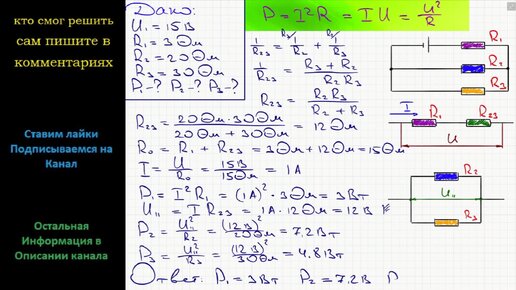 кто смог решить
сам пишите в
комментариях
Ставим лайки
Подписываемся на
Канал
Остальная
Информация в
Описании канала
Дано:
U₁ = 15В
R₁ = 3Ом
R₂ = 20Ом
R₃ = 30Ом
P₁-? P₂-? P₃-?
P = I²R = IU = U²/R
1/R₂₃ = 1/R₂ + 1/R₃
1/R₂₃ = (R₃ + R₂)/(R₂R₃)
R₂₃ = R₂R₃/(R₂ + R₃)
R₂₃ = 20Ом·30Ом/(20Ом + 30Ом) = 12Ом
R₀ = R₁ + R₂₃ = 3Ом + 12Ом = 15Ом
I = U/R₀ = 15В/15Ом = 1А
P₁ = I²R₁ = (1А)²·3Ом = 3Вт
U₁₁ = IR₂₃ = 1А·12Ом = 12В
P₂ = U₁₁²/R₂ = (12В)²/20Ом = 7.2Вт
P₃ = U₁₁²/R₃ = (12В)²/30Ом = 4.8Вт
Ответ: P₁ = 3Вт P₂ = 7.2В P
R₁
R₂
R₃
I
R₁ R₂₃
U
R₂
U₁₁
R₃